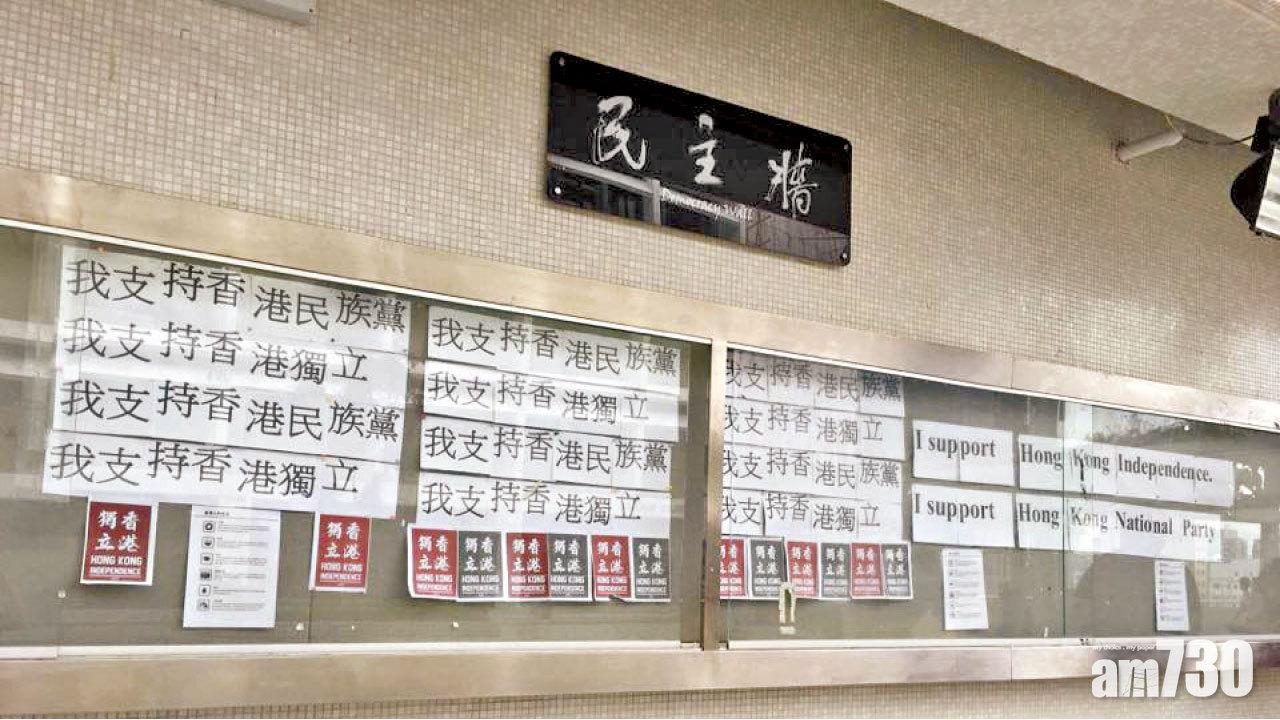 民主牆
Democracy Wall
我支持香港民族黨
我支持香港獨立
我支持香港民族黨
我支持香港獨立
香港
獨立
HONG KONG
INDEPENDENCE
香港
獨立
HONG KONG
INDEPENDENCE
我支持香港民族黨
我支持香港獨立
我支持香港民族黨
我支持香港獨立
香港
獨立
HONG KONG
INDEPENDENCE
香港
獨立
HONG KONG
INDEPENDENCE
香港
獨立
HONG KONG
INDEPENDENCE
香港
獨立
HONG KONG
INDEPENDENCE
香港
獨立
HONG KONG
INDEPENDENCE
香港
獨立
HONG KONG
INDEPENDENCE
我支持香港民族黨
我支持香港獨立
我支持香港民族黨
我支持香港獨立
香港
獨立
HONG KONG
INDEPENDENCE
香港
獨立
HONG KONG
INDEPENDENCE
香港
獨立
HONG KONG
INDEPENDENCE
香港
獨立
HONG KONG
INDEPENDENCE
香港
獨立
HONG KONG
INDEPENDENCE
香港
獨立
HONG KONG
INDEPENDENCE
I support Hong Kong Independence.
I support Hong Kong National Party
am730